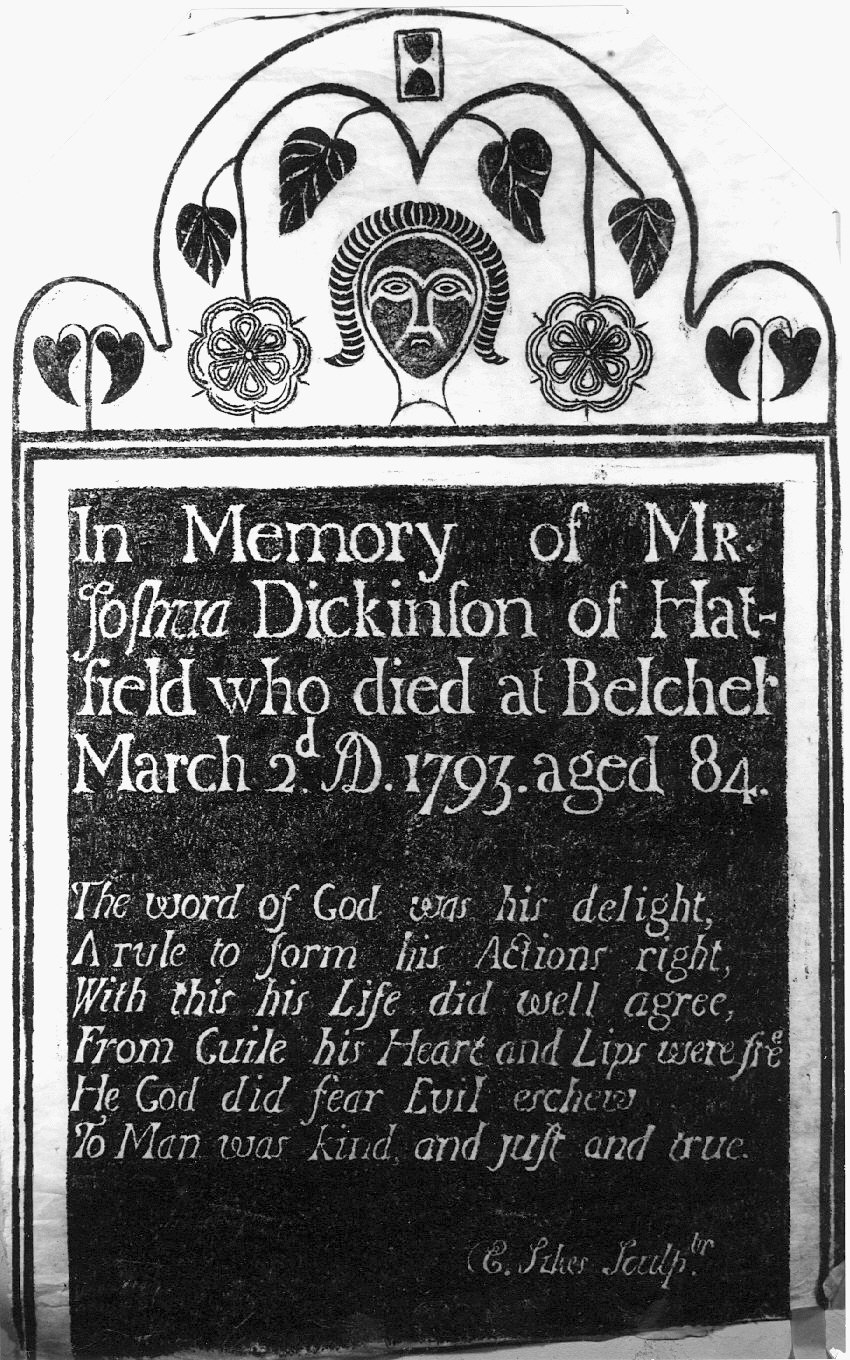 In Memory of Mr.
Joſhua Dickinſon of Hat-
field who died at Belcher
March 2.d AD. 1793. aged 84.
The word of God was his delight,
A rule to form his Actions right,
With this his Life did well agree,
From Guile his Heart and Lips were free
He God did fear Evil eschew
To Man was kind, and juſt and true.
E. Sikes Sculp.tr